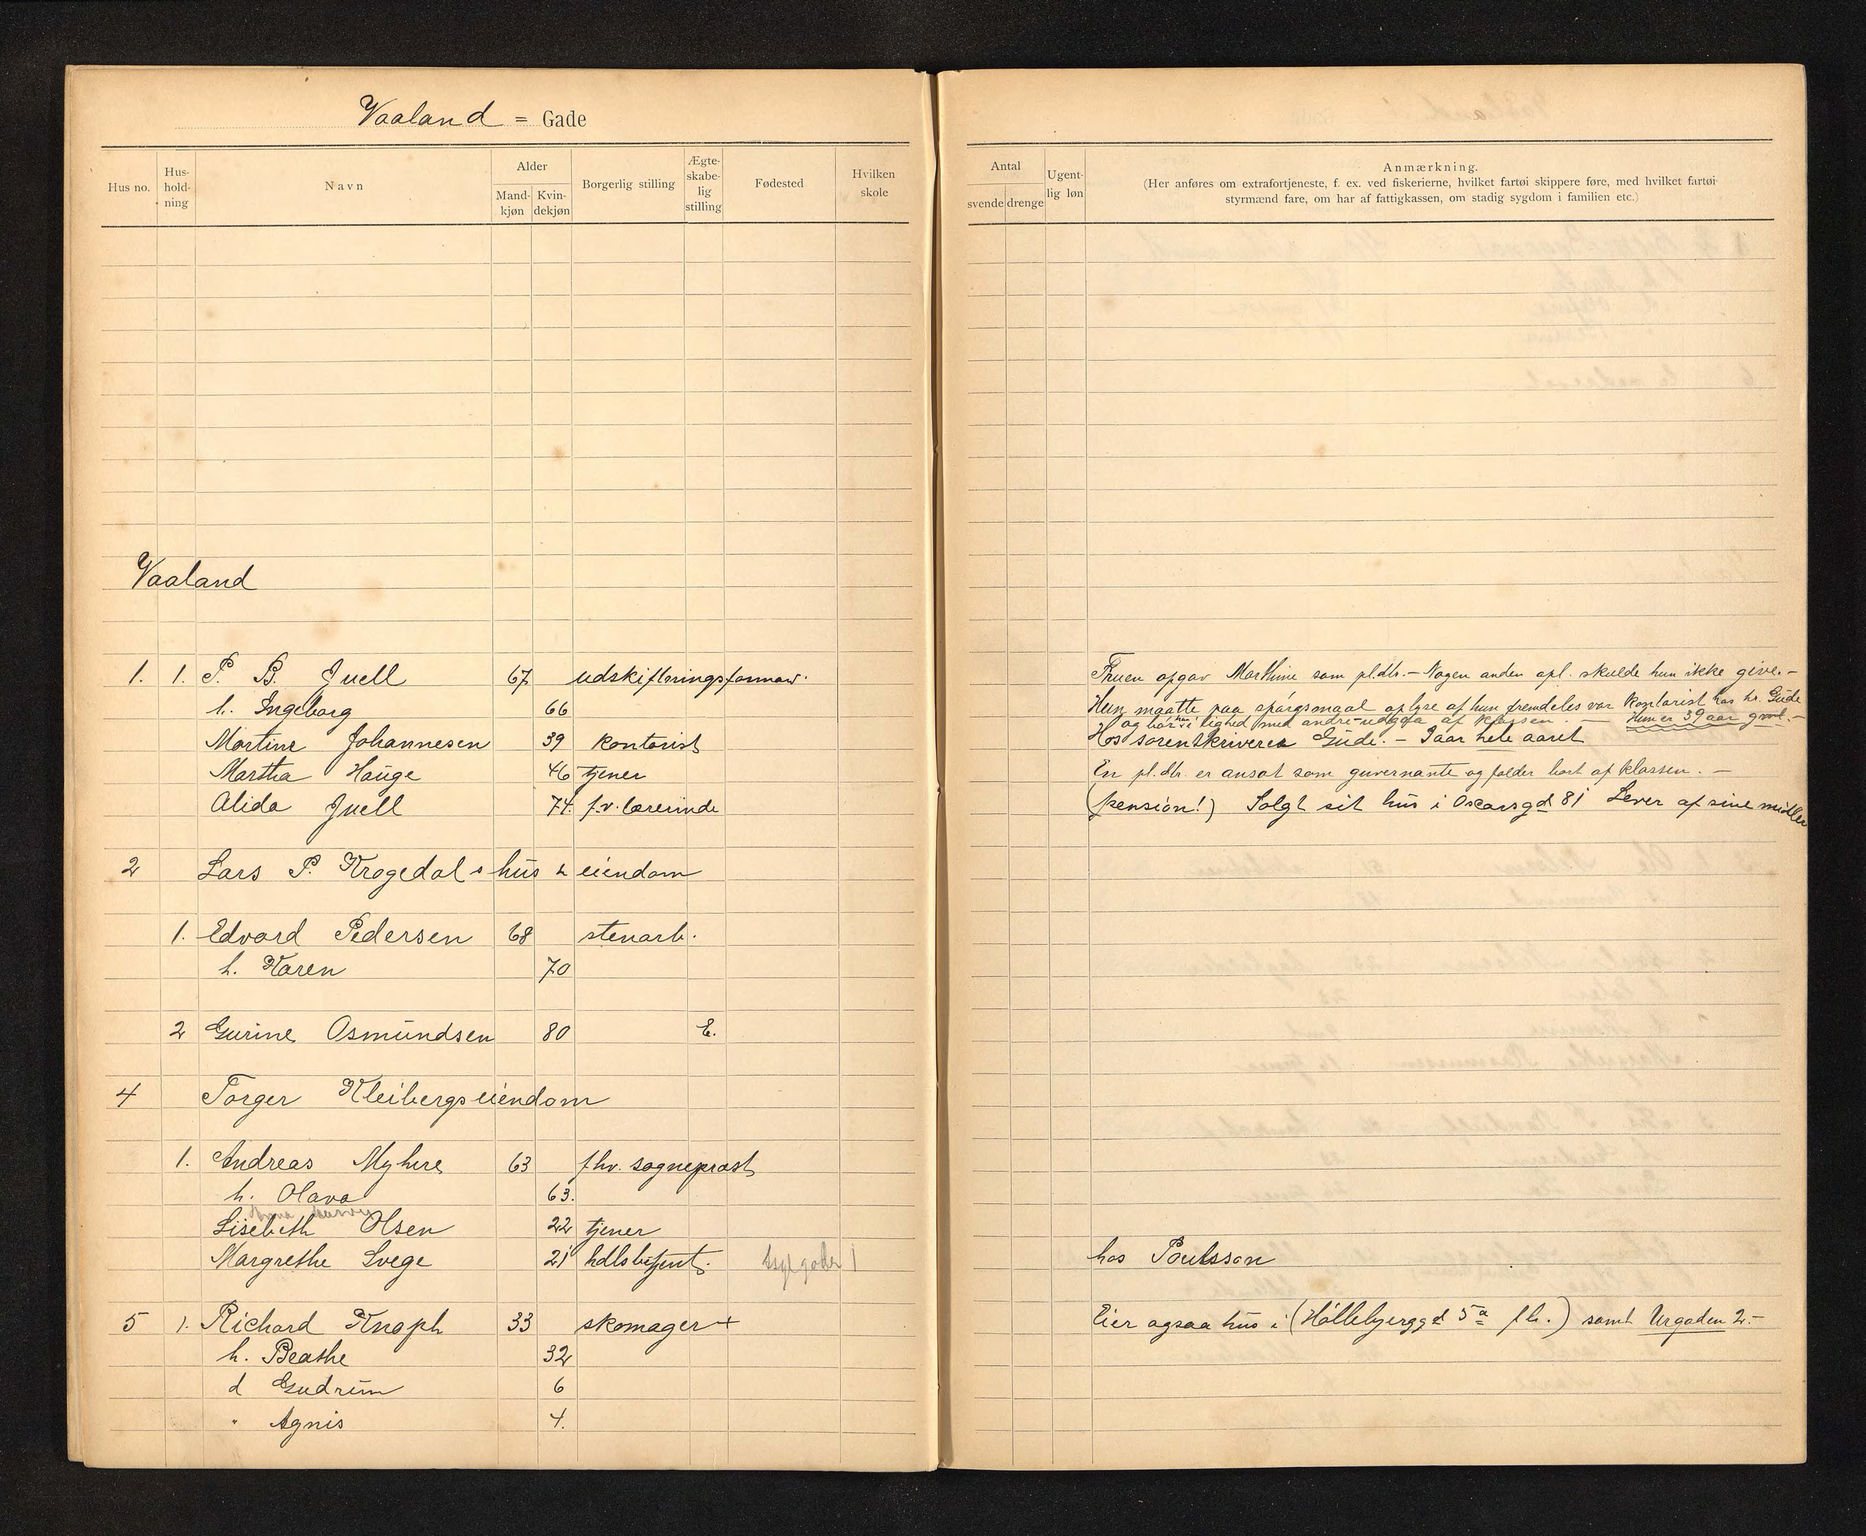 Vaaland = Gade
Hus no. Hus-hold-ning Navn Alder Mand-kjøn Kvin-dekjøn Borgerlig stilling Ægte-skabe-lig stilling Fødested Hvilken skole
Antal svende drenge Ugent-lig løn Anmærkning.
(Her anføres om extrafortjeneste, f. ex. ved fiskerierne, hvilket fartøi skippere føre, med hvilket fartøi
styrmænd fare, om har af fattigkassen, om stadig sygdom i familien etc.)
Vaaland
1. 1. P. B. Juell 67 udskiftningsformav. Fruen opgav Marthine som pl.dtr. – Nogen anden opl. skulde hun ikke give. –
h. Ingeborg 66 Hun maatte paa spørgsmaal oplyse at hun fremdeles var kontorist hos hr. Gude
og bør i lighed med andre udgaa af klassen. – Hun er 39 aar gml. –
Martine Johannesen 39 kontorist Hos sorenskriver Gude. – I aar hele aaret
Martha Hauge 46 tjener En pl.dtr. er ansat som guvernante og falder bort af klassen. –
Alida Juell 74. f.v. lærerinde (pension!) Solgt sit hus i Oscarsgd 81 Lever af sine midler
2 Lars P. Krogedals hus & eiendom
1. Edvard Pedersen 68 stenarb.
h. Karen 70
2 Gurine Osmundsen 80 E.
4 Torger Kleibergs eiendom
1. Andreas Myhre 63 fhv. sogneprest
h. Olava 63.
Lisebeth Olsen 22 tjener
Margrethe Svege 21 hdlsbetjent. hos Poulsson
5 1. Richard Knoph 33 skomager + Eier ogsaa hus i (Høllebjerggd 5a fh.) samt Urgaden 2. –
h. Beathe 32
d Gudrun 6
" Agnis 4.